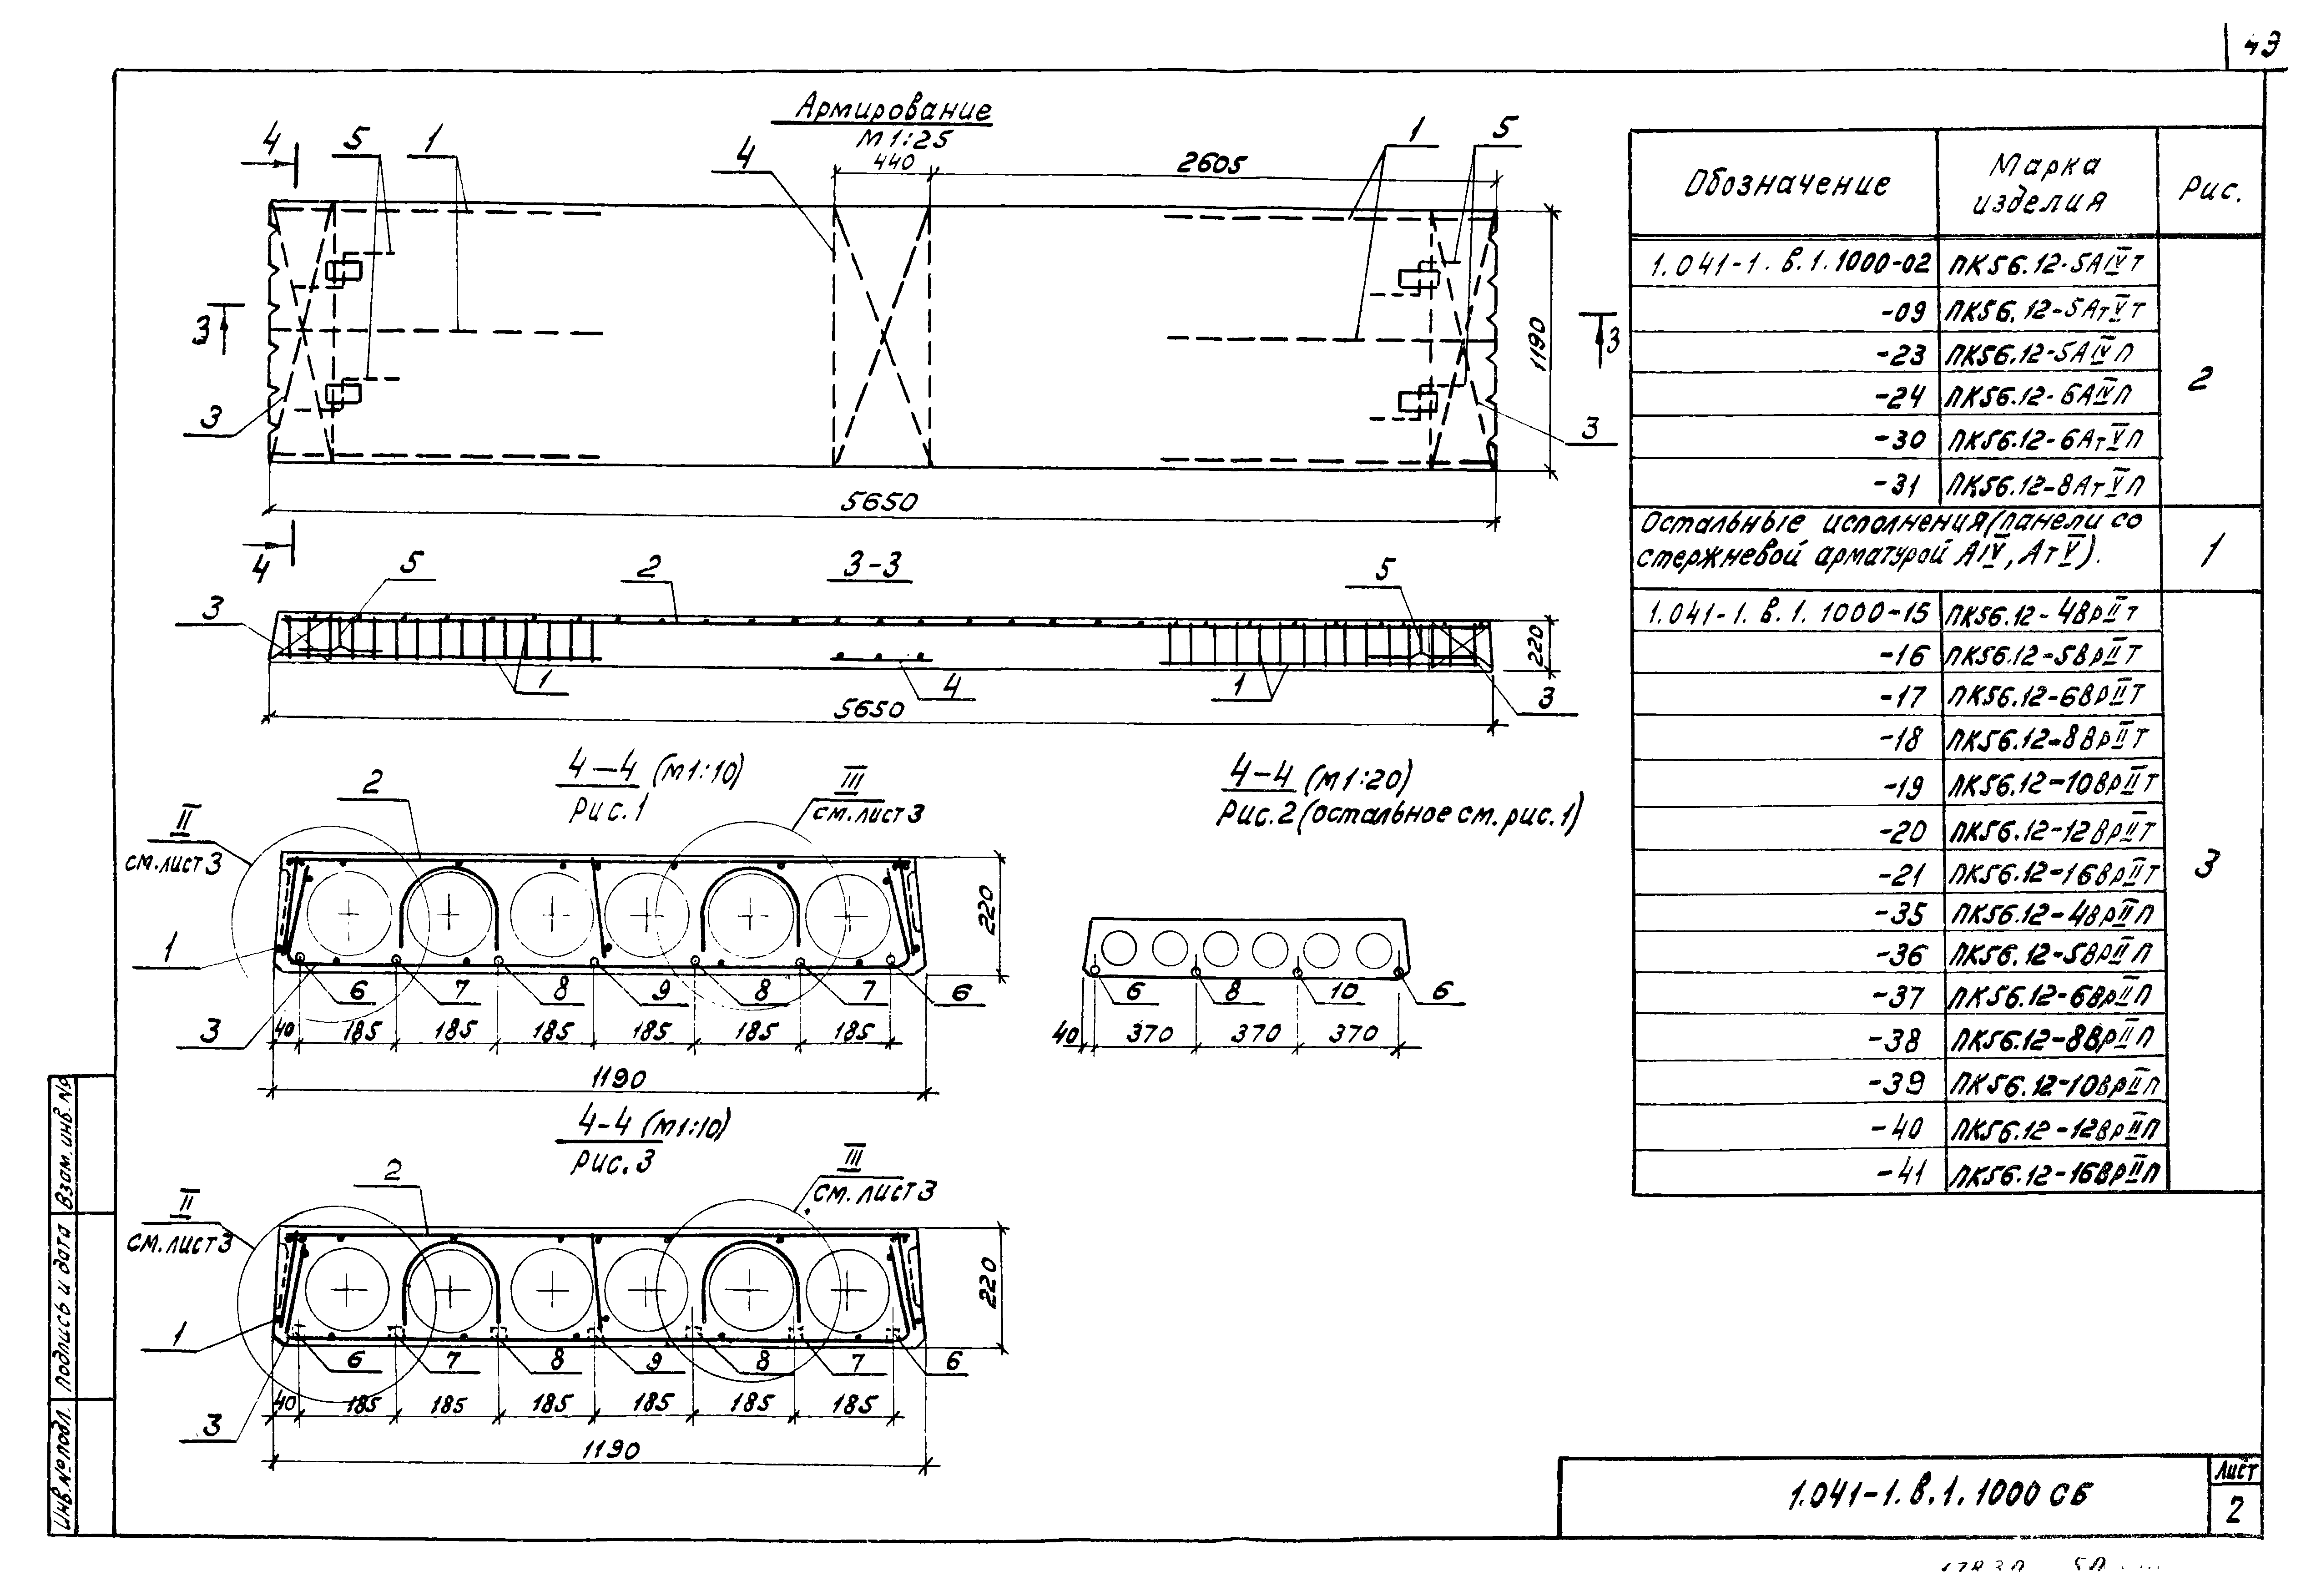 43
Армирование
М 1:25
440
2605
4
5
1
4
1
5
3
3
3
3
1190
5650
4
5
2
3-3
5
3
220
1
4
1
3
5650
4-4 (М1:10)
Рис.1
2
III
см. лист 3
II
см. лист 3
1
3
220
6
7
8
9
8
7
6
40
185
185
185
185
185
185
1190
4-4 (М1:20)
Рис.2 (остальное см. рис.1)
6
8
10
6
40
370
370
370
4-4 (М1:10)
Рис.3
2
III
см. лист 3
II
см. лист 3
1
3
220
6
7
8
9
8
7
6
40
185
185
185
185
185
185
1190
Обозначение
Марка изделия
Рис.
1.041-1.в.1.1000-02 ПК56.12-5АIVт
-09 ПК56.12-5АтVт
-23 ПК56.12-5АIVп
-24 ПК56.12-6АIVп
-30 ПК56.12-6АтVп
-31 ПК56.12-8АтVп
2
Остальные исполнения (панели со
стержневой арматурой АIV, АтV).
1
1.041-1.в.1.1000-15 ПК56.12-4ВрIIт
-16 ПК56.12-5ВрIIт
-17 ПК56.12-6ВрIIт
-18 ПК56.12-8ВрIIт
-19 ПК56.12-10ВрIIт
-20 ПК56.12-12ВрIIт
-21 ПК56.12-16ВрIIт
-35 ПК56.12-4ВрIIп
-36 ПК56.12-5ВрIIп
-37 ПК56.12-6ВрIIп
-38 ПК56.12-8ВрIIп
-39 ПК56.12-10ВрIIп
-40 ПК56.12-12ВрIIп
-41 ПК56.12-16ВрIIп
3
Взам. инв. №
Подпись и дата
Инв. № подл.
1.041-1.в.1.1000 СБ
Лист
2